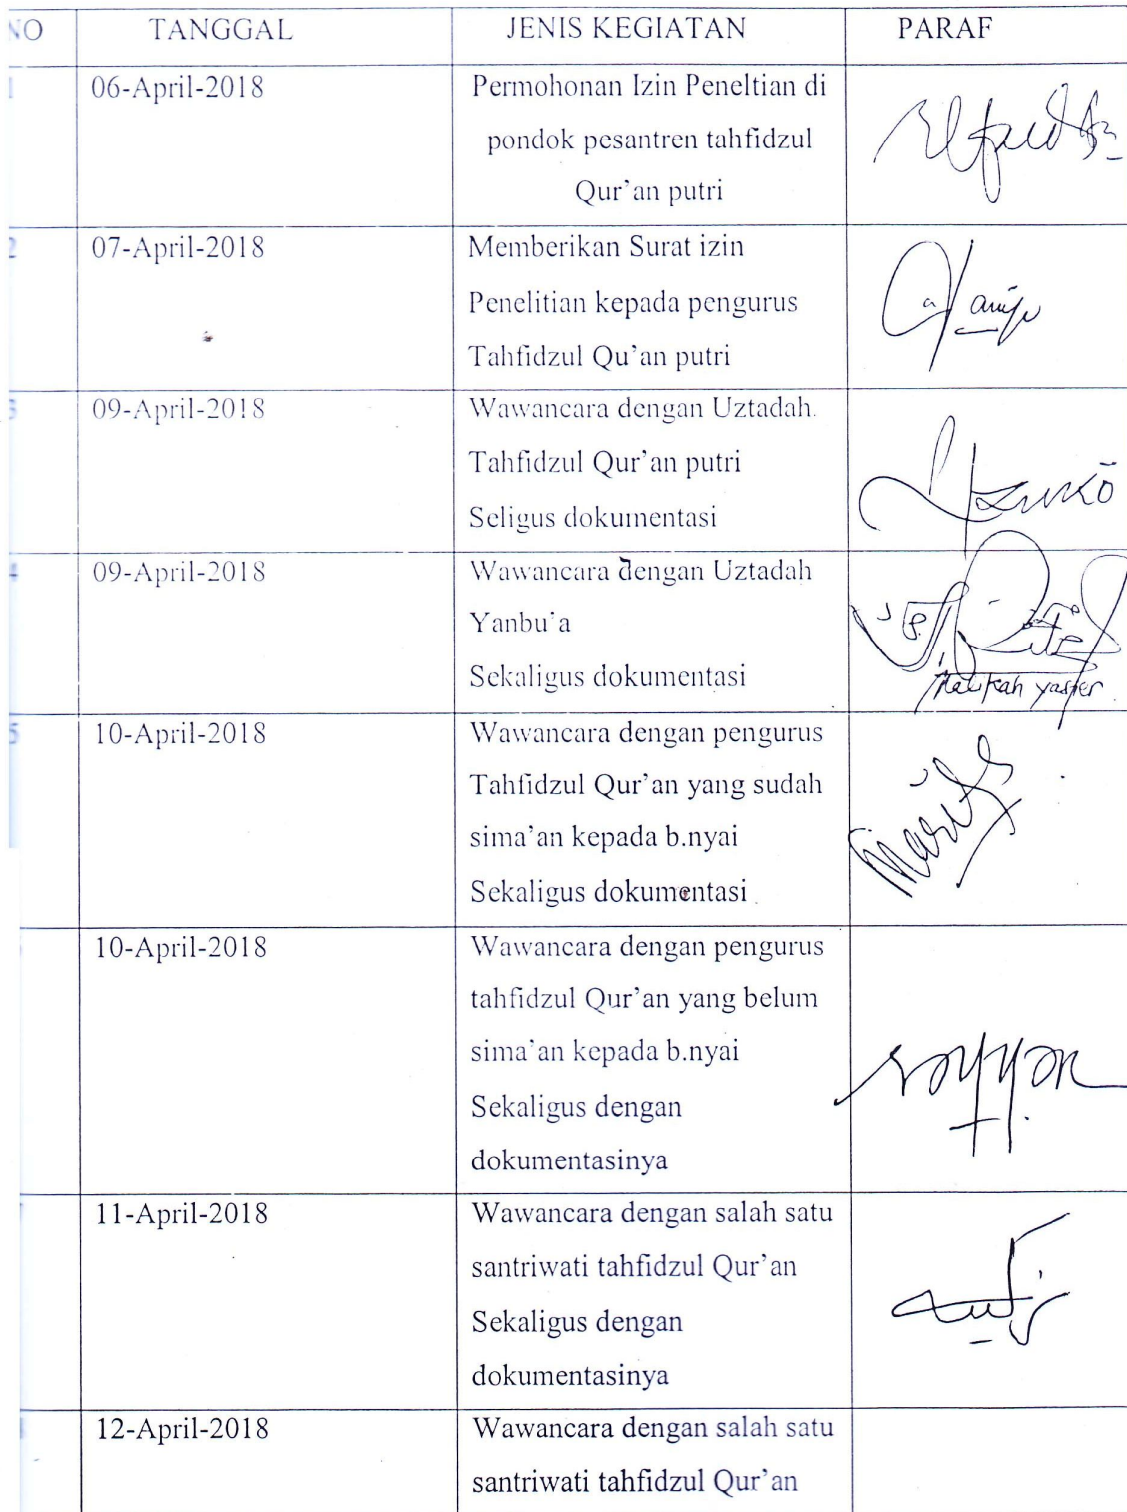 NO TANGGAL JENIS KEGIATAN PARAF
1 06-April-2018 Permohonan Izin Peneltian di
pondok pesantren tahfidzul
Qur'an putri
2 07-April-2018 Memberikan Surat izin
Penelitian kepada pengurus
Tahfidzul Qu'an putri
3 09-April-2018 Wawancara dengan Uztadah
Tahfidzul Qur'an putri
Seligus dokumentasi
4 09-April-2018 Wawancara dengan Uztadah
Yanbu'a
Sekaligus dokumentasi
5 10-April-2018 Wawancara dengan pengurus
Tahfidzul Qur'an yang sudah
sima'an kepada b.nyai
Sekaligus dokumentasi
10-April-2018 Wawancara dengan pengurus
tahfidzul Qur'an yang belum
sima'an kepada b.nyai
Sekaligus dengan
dokumentasinya
11-April-2018 Wawancara dengan salah satu
santriwati tahfidzul Qur'an
Sekaligus dengan
dokumentasinya
12-April-2018 Wawancara dengan salah satu
santriwati tahfidzul Qur'an